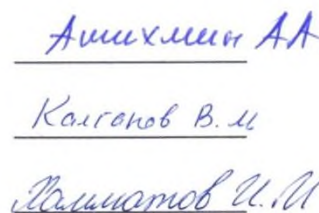 Ашихмин АА
Калганов В.М
Халматов И.М